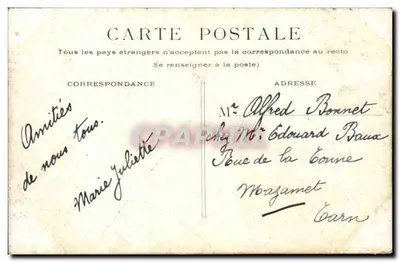 CARTE POSTALE
Tous les pays étrangers n'acceptent pas la correspondance au recto
(Se renseigner à la poste)
CORRESPONDANCE
ADRESSE
Amitiés
de nous tous.
Marie Juliette
Mr. Alfred Bonnet
chez Mr Edouard Baux
Rue de la
Mazamet
Tarn